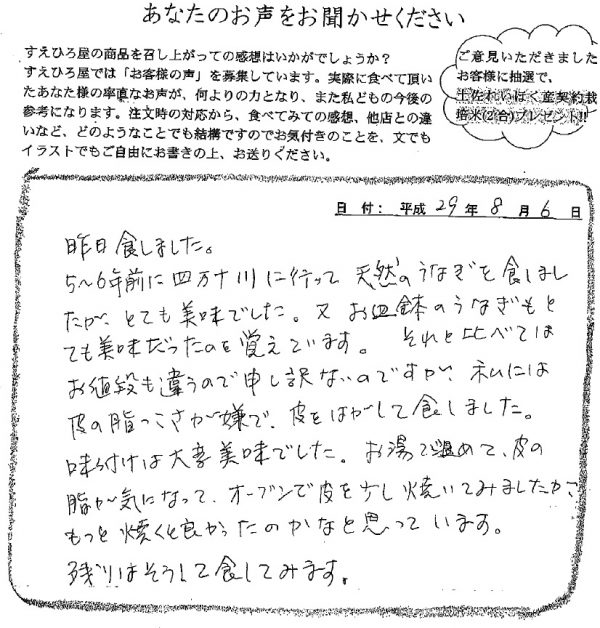 あなたのお声をお聞かせください
すえひろ屋の商品を召し上がっての感想はいかがでしょうか？
すえひろ屋では「お客様の声」を募集しています。実際に食べて頂い
たあなた様の率直なお声が、何よりの力となり、また私どもの今後の
参考になります。注文時の対応から、食べてみての感想、他店との違
いなど、どのようなことでも結構ですのでお気付きのことを、文でも
イラストでもご自由にお書きの上、お送りください。
ご意見いただきました
お客様に抽選で、
土佐れいほく産契約栽
培米(2合)プレゼント!!
日 付： 平成 29 年 8 月 6 日
昨日食しました。
5～6年前に四万十川に行って天然のうなぎを食しまし
たが、とても美味でした。又お皿鉢のうなぎもと
ても美味だったのを覚えています。それと比べては
お値段も違うので申し訳ないのですが、私には
皮の脂っこさが嫌で、皮をはがして食しました。
味付けは大変美味でした。お湯で温めて、皮の
脂が気になって、オーブンで皮を少し焼いてみましたが、
もっと焼くと良かったのかなと思っています。
残りはそうして食してみます。